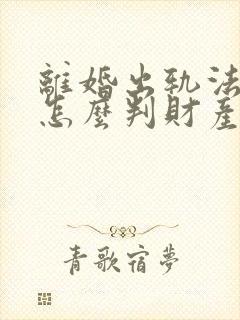 離婚出軌法
怎麼判財產
青歌宿夢